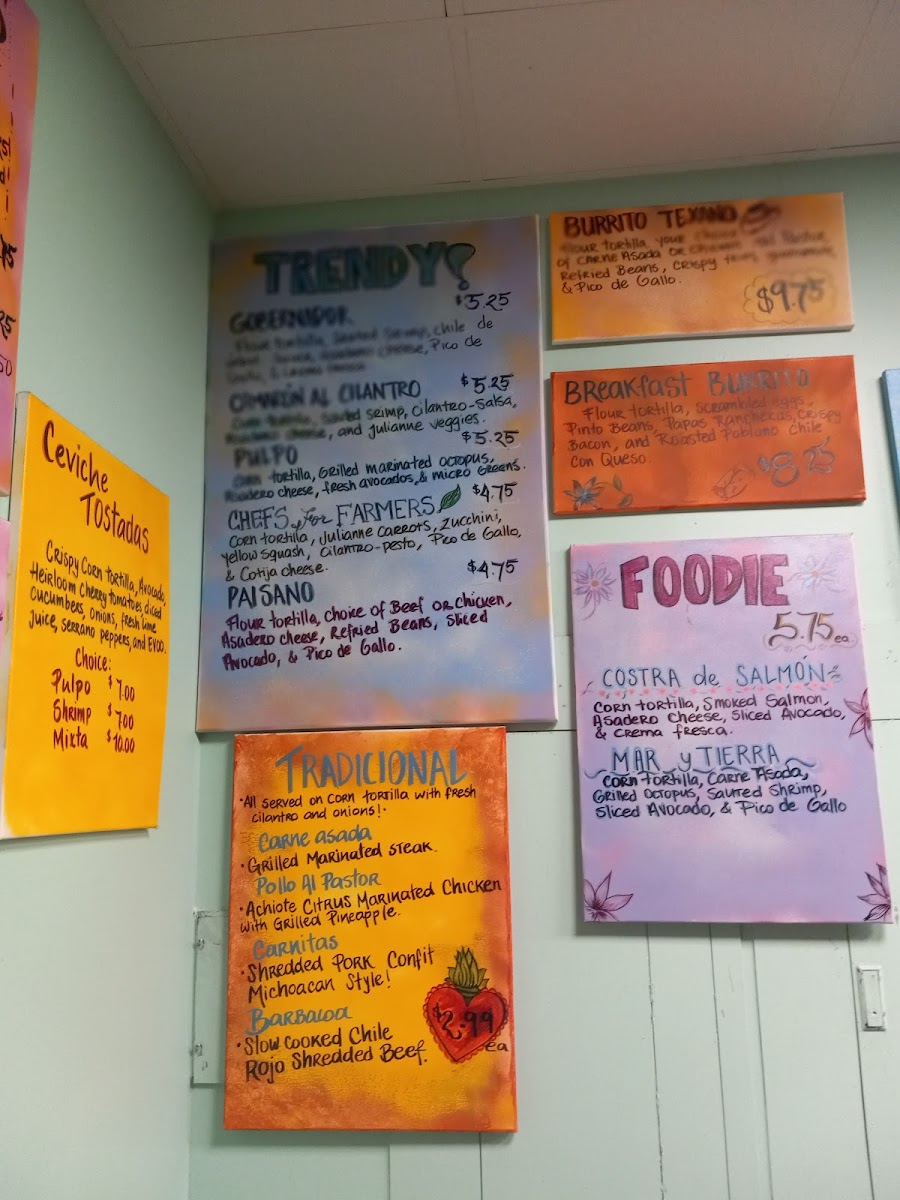 Ceviche
Tostadas
Crispy Corn tortilla, Avocado,
Heirloom Cherry tomatoes, diced
Cucumbers, onions, fresh lime
Juice, serrano peppers, and EVOO.
Choice:
Pulpo $7.00
Shrimp $7.00
Mixta $10.00
TRENDY!
$5.25
GOBERNADOR
Flour tortilla, Sauted Shrimp, Chile de
cheese, Pico de
CAMARÓN AL CILANTRO $5.25
Corn tortilla, Sauted Srimp, Cilantro-Salsa,
Asadero cheese, and Julianne veggies.
PULPO $5.25
Corn tortilla, Grilled marinated octopus,
Asadero cheese, fresh avocados, & micro Greens.
CHEFS for FARMERS $4.75
Corn tortilla, Julianne Carrots, Zucchini,
Yellow Squash, Cilantro-pesto, Pico de Gallo,
& Cotija cheese.
$4.75
PAISANO
Flour tortilla, Choice of Beef or Chicken,
Asadero cheese, Refried Beans, Sliced
Avocado, & Pico de Gallo.
TRADICIONAL
·All served on corn tortilla with fresh
cilantro and onions!·
Carne asada
·Grilled Marinated steak.
Pollo Al Pastor
·Achiote Citrus Marinated Chicken
with Grilled Pineapple.
Carnitas
·Shredded Pork Confit
Michoacan Style!
Barbacoa
·Slow cooked Chile
Rojo Shredded Beef.
$2.99
ea
BURRITO TEXANO
Flour tortilla your choice
of Carne Asada or Chicken Al Pastor
Refried Beans, Crispy
& Pico de Gallo.
$9.75
Breakfast BURRITO
Flour tortilla, Scrambled eggs,
Pinto Beans, Papas Rancheras, Crispy
Bacon, and Roasted Poblano Chile
con Queso.
$8.25
FOODIE
5.75 ea
COSTRA de SALMÓN
Corn tortilla, Smoked Salmon,
Asadero Cheese, Sliced Avocado,
& Crema fresca.
MAR y TIERRA
Corn tortilla, Carne Asada,
Grilled Octopus, Sauted Shrimp,
Sliced Avocado, & Pico de Gallo